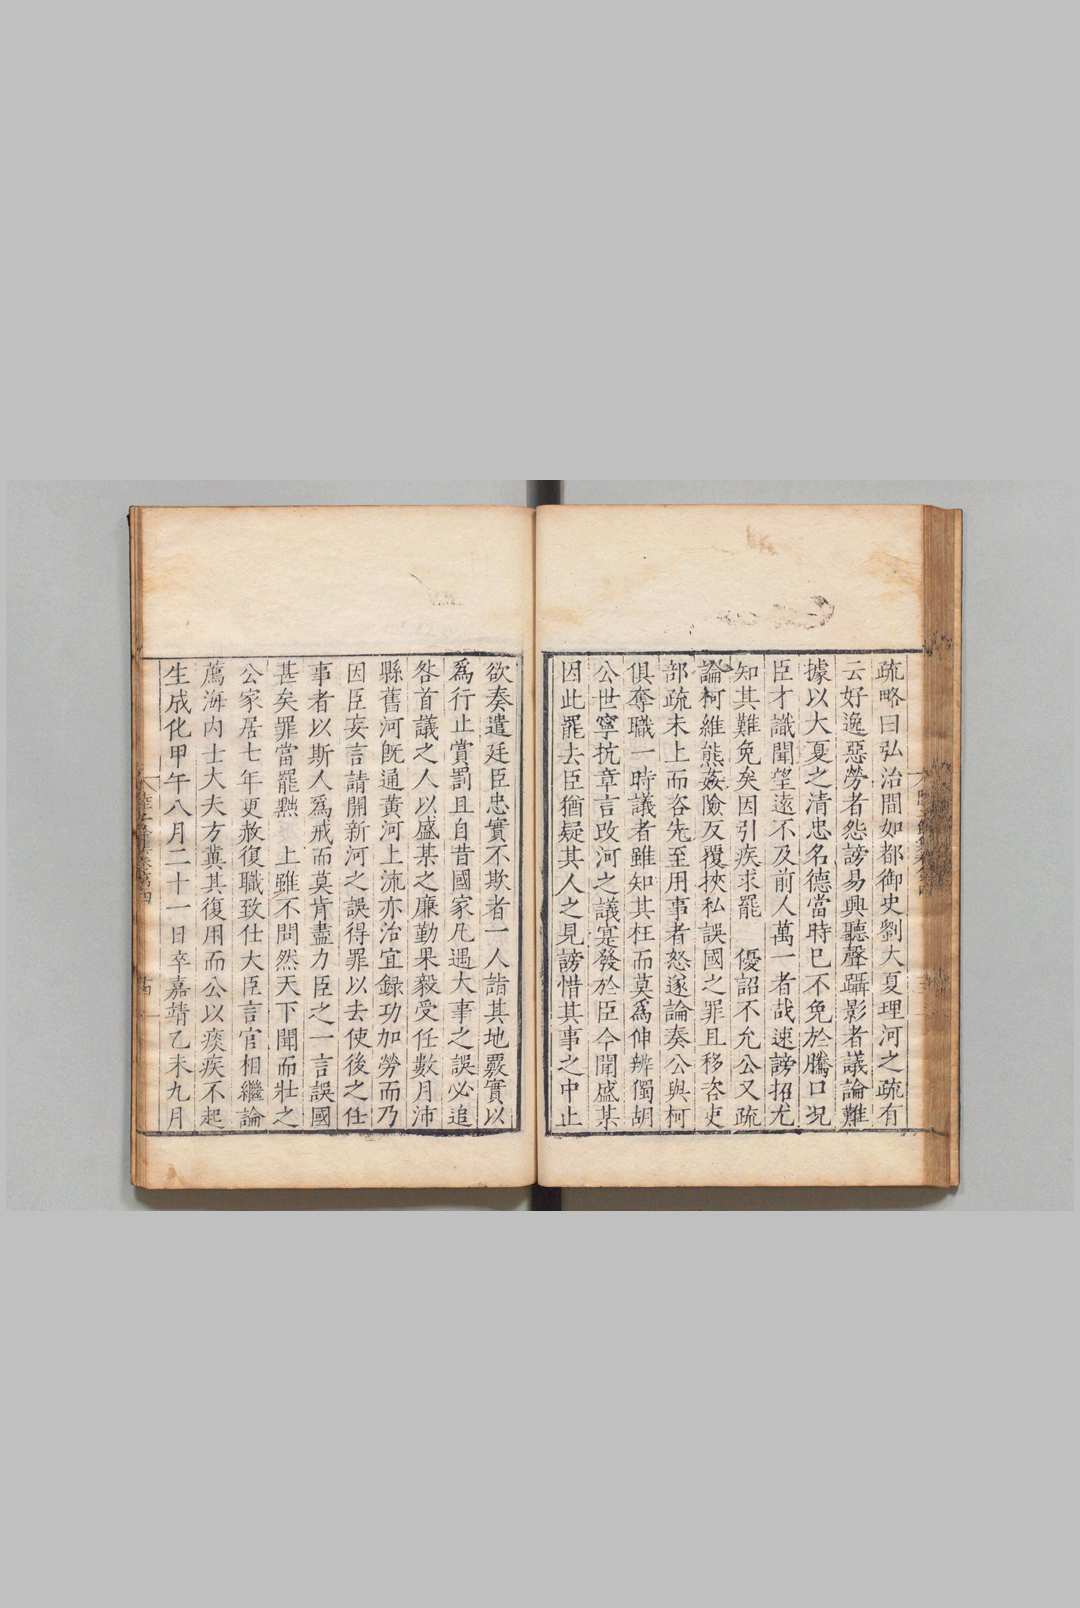 疏略曰弘治間如都御史劉大夏理河之疏有
云好逸惡勞者怨謗易興聽聲躡影者議論難
據以大夏之清忠名德當時已不免於騰口况
臣才識聞望遠不及前人萬一者哉速謗招尤
知其難免矣因引疾求罷　優詔不允公又疏
論柯維熊姦險反覆挾私誤國之罪且移咨吏
部疏未上而咨先至用事者怒遂論奏公與柯
俱奪職一時議者雖知其枉而莫爲伸辨獨胡
公世寧抗章言改河之議寔發於臣今聞盛某
因此罷去臣猶疑其人之見謗惜其事之中止
欲奏遣廷臣忠實不欺者一人詣其地覈實以
爲行止賞罰且自昔國家凡遇大事之誤必追
咎首議之人以盛某之廉勤果毅受任數月沛
縣舊河旣通黄河上流亦治宜錄功加勞而乃
因臣妄言請開新河之誤得罪以去使後之任
事者以斯人爲戒而莫肯盡力臣之一言誤國
甚矣罪當罷黜　上雖不問然天下聞而壯之
公家居七年更赦復職致仕大臣言官相繼論
薦海内士大夫方冀其復用而公以痰疾不起
生成化甲午八月二十一日卒嘉靖乙未九月